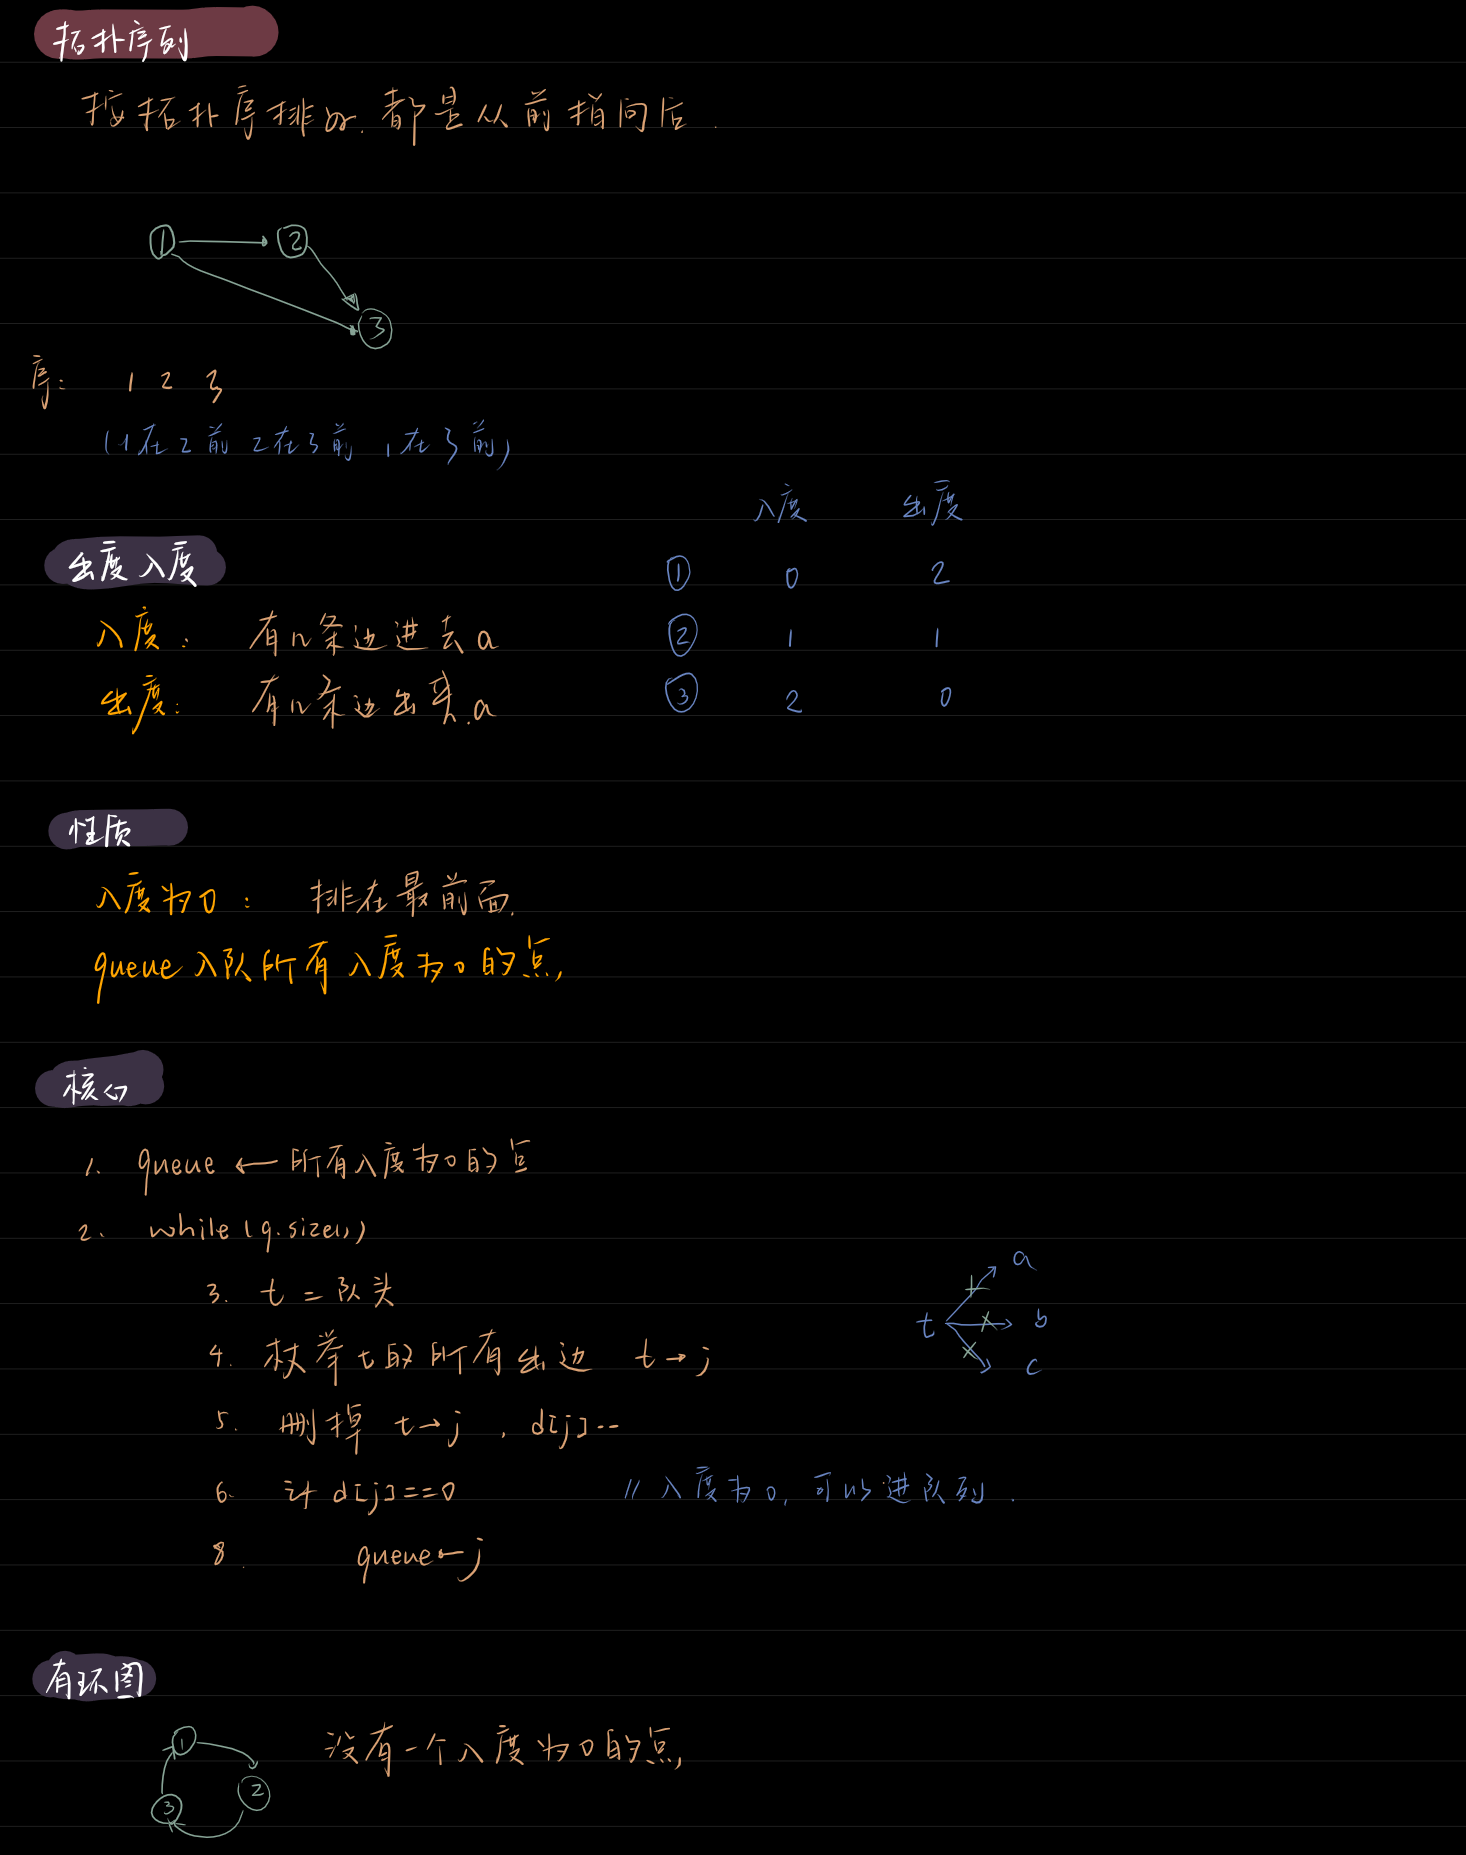 拓扑序列
按拓扑序排好.都是从前指向后.
1 2
3
序: 1 2 3
(1在2前 2在3前 1在3前)
入度 出度
出度入度
① 0 2
入度: 有几条边进去a
② 1 1
出度: 有几条边出来a
③ 2 0
性质
入度为0: 排在最前面.
queue入队所有入度为0的点,
核心
1. queue ← 所有入度为0的点
2. while(q.size())
3. t = 队头
a
t b
4. 枚举t的所有出边 t→j
c
5. 删掉 t→j , d[j]--
6. d[j]==0 // 入度为0, 可以进队列.
8. queue←j
有环图
1
没有一个入度为0的点,
2
3